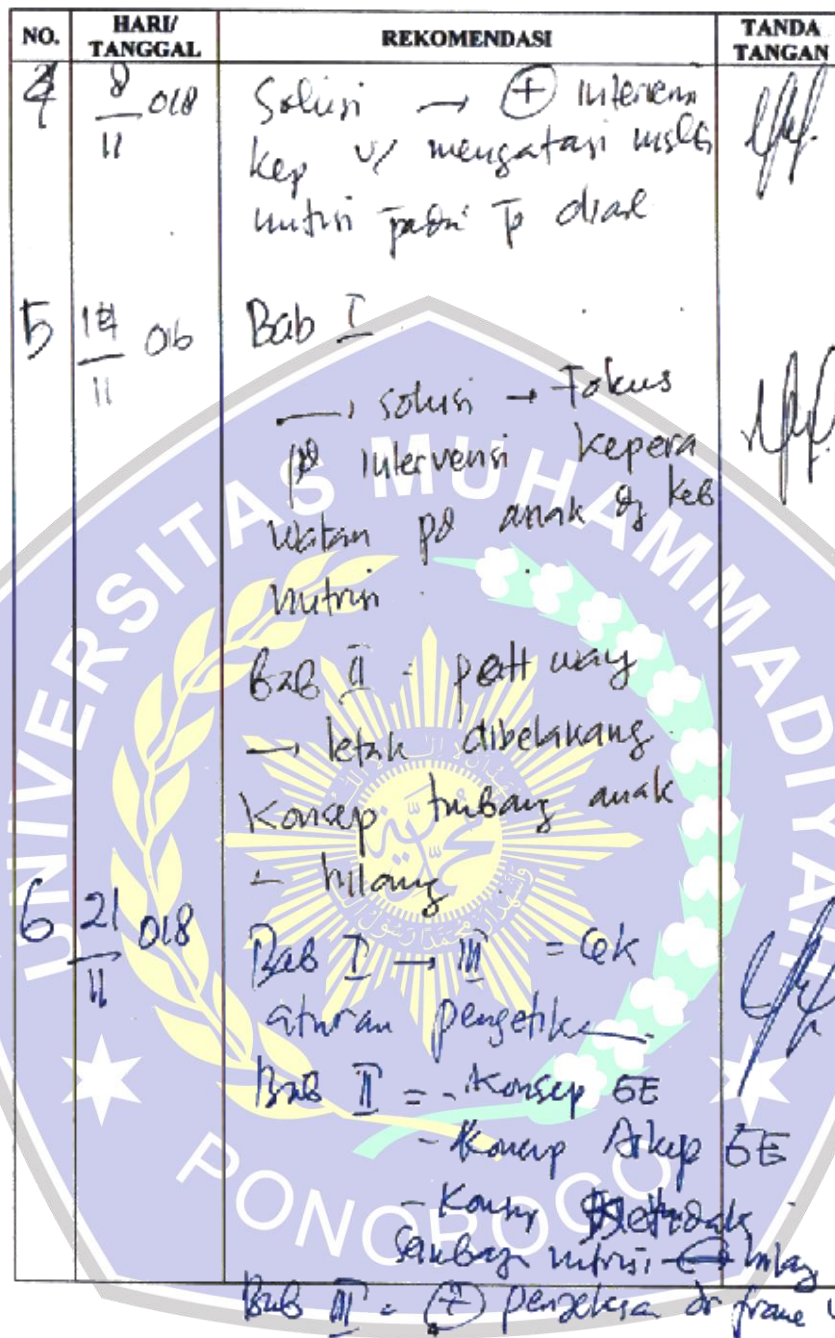 NO. HARI/ TANGGAL REKOMENDASI TANDA TANGAN
4 8/11 018 Solusi → (+) intervensi
kep u/ mengatasi
nutrisi diare
5 14/11 016 Bab I
→ solusi → Fokus
pd intervensi kepera
watan pd anak dg keb
nutrisi
Bab II = path way
→ letak dibelakang
Konsep tumbang anak
- hilang
6 21/11 018 Bab I → III = Cek
aturan pengetikan
Bab II = - Konsep GE
- Konsep Askep GE
- Konsep
seimbang nutrisi → hilang
Bab III = (+) penjelasan dr frame
UNIVERSITAS MUHAMMADIYAH
PONOROGO